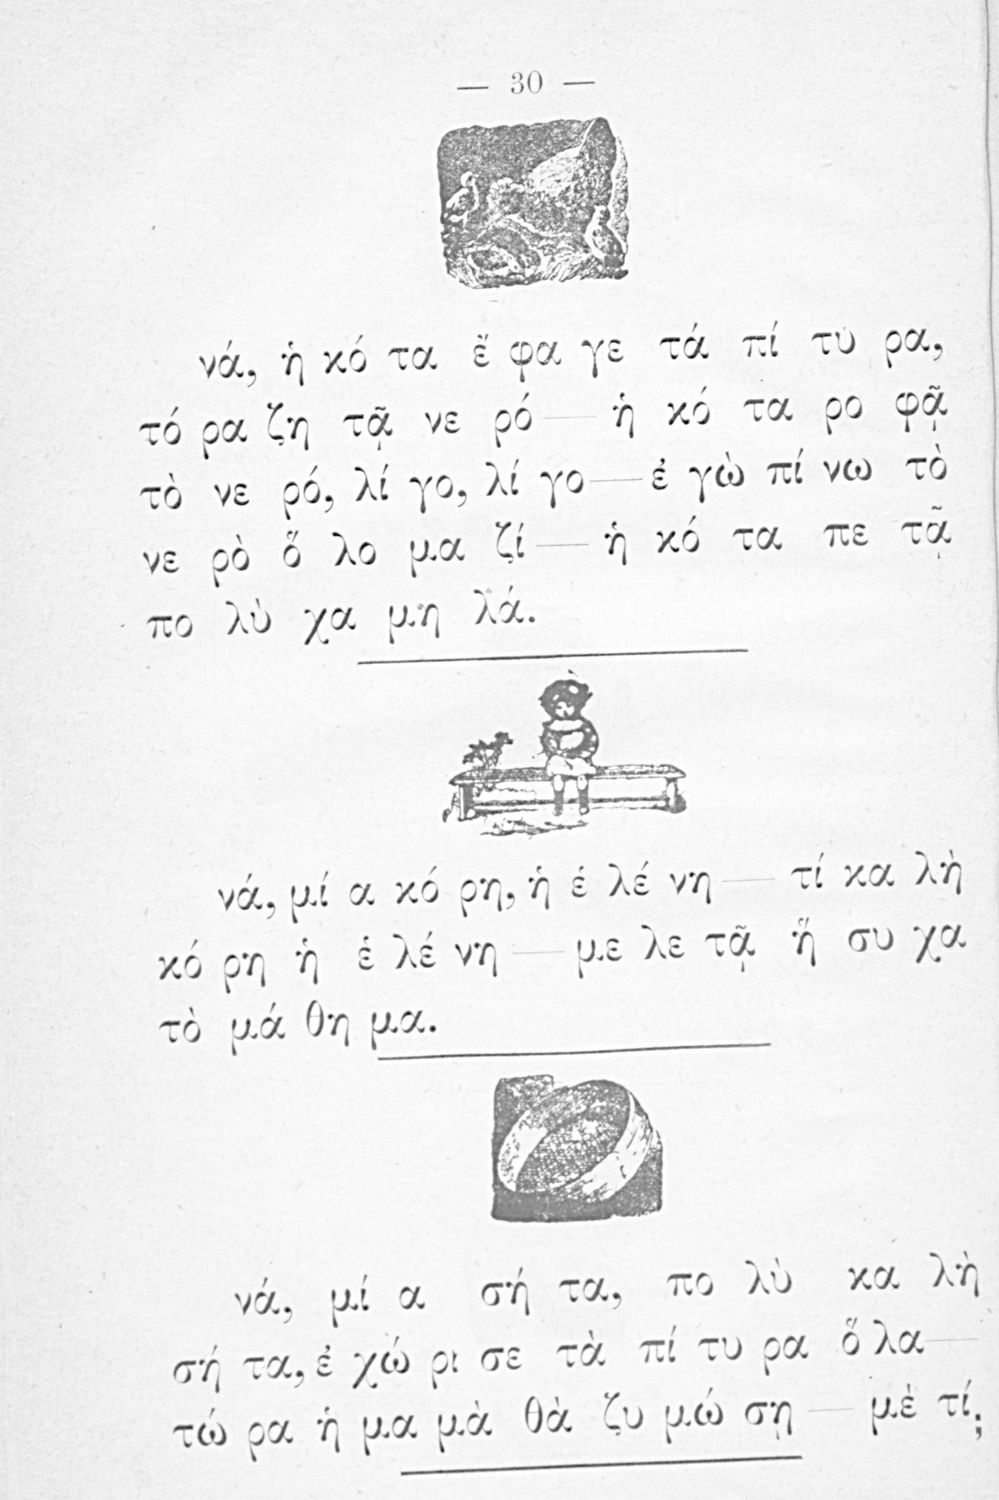 — 30 —
νά, ἡ κό τα ἔ φα γε τά πί τυ ρα,
τό ρα ζη τᾷ νε ρό — ἡ κό τα ρο φᾷ
τὸ νε ρό, λί γο, λί γο — ἐ γὼ πί νω τὸ
νε ρὸ ὅ λο μα ζί — ἡ κό τα πε τᾷ
πο λὺ χα μη λά.
νά, μί α κό ρη, ἡ ἑ λέ νη — τί κα λὴ
κό ρη ἡ ἑ λέ νη — με λε τᾷ ἥ συ χα
τὸ μά θη μα.
νά, μί α σή τα, πο λὺ κα λὴ
σή τα, ἐ χώ ρι σε τὰ πί τυ ρα ὅ λα —
τώ ρα ἡ μα μὰ θὰ ζυ μώ σῃ — μὲ τί;